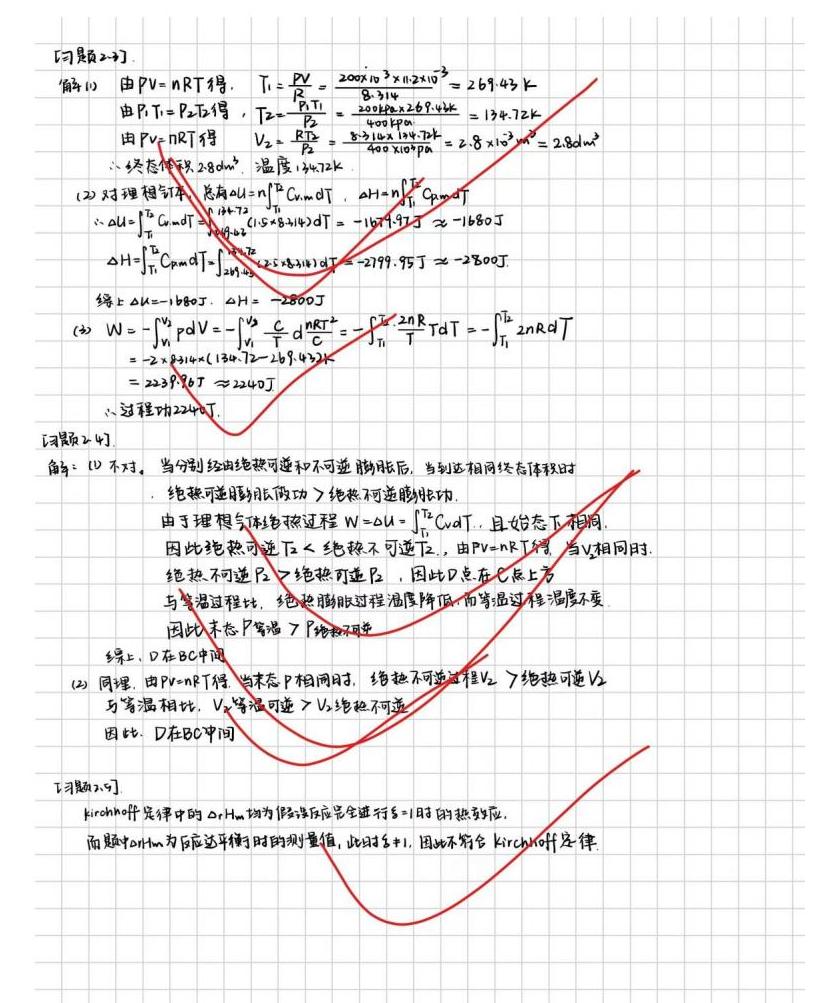 [习题2.3].
解(1) 由PV=nRT得, T₁=PV/R=200×10³×11.2×10⁻³/8.314=269.43K
由P₁T₁=P₂T₂得, T₂=P₁T₁/P₂=200kpa×269.43K/400kpa=134.72K
由PV=nRT得 V₂=RT₂/P₂=8.314×134.72K/400×10³pa=2.8×10⁻³m³=2.8dm³
∴终态体积2.8dm³, 温度134.72K.
(2) 对理想气体, 总有ΔU=n∫_{T₁}^{T₂}Cv.mdT, ΔH=n∫_{T₁}^{T₂}CpmdT
∴ΔU=∫_{T₁}^{T₂}Cv.mdT=∫_{269.43}^{134.72}(1.5×8.314)dT=-1679.97J≈-1680J
ΔH=∫_{T₁}^{T₂}CpmdT=∫_{269.43}^{134.72}(2.5×8.314)dT=-2799.95J≈-2800J.
综上ΔU=-1680J. ΔH=-2800J
(3) W=-∫_{V₁}^{V₂}pdV=-∫_{V₁}^{V₂}C/T d nRT²/C=-∫_{T₁}^{T₂}2nR/T TdT=-∫_{T₁}^{T₂}2nRdT
=-2×8.314×(134.72-269.43)K
=2239.96J≈2240J
∴过程功2240J.
[习题2.4].
解: (1) 不对。当分别经由绝热可逆和不可逆膨胀后, 当到达相同终态体积时
绝热可逆膨胀做功>绝热不可逆膨胀功.
由于理想气体绝热过程W=ΔU=∫_{T₁}^{T₂}CvdT, 且始态下相同.
因此绝热可逆T₂<绝热不可逆T₂, 由PV=nRT得, 当V₂相同时.
绝热不可逆P₂>绝热可逆P₂, 因此D点在C点上方
与等温过程比, 绝热膨胀过程温度降低, 而等温过程温度不变.
因此末态P等温>P绝热不可逆
综上, D在BC中间
(2) 同理, 由PV=nRT得, 当末态P相同时, 绝热不可逆过程V₂>绝热可逆V₂
与等温相比, V₂等温可逆>V₂绝热不可逆
因此, D在BC中间
[习题2.5].
kirchhoff定律中的ΔrHm均为假设反应完全进行ξ=1时的热效应,
而题中ΔrHm为反应达平衡时的测量值, 此时ξ≠1, 因此不符合Kirchhoff定律.